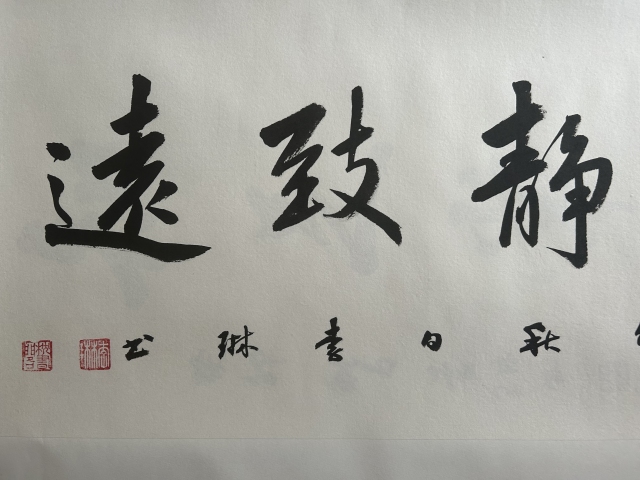 静致遠
秋日李琳书